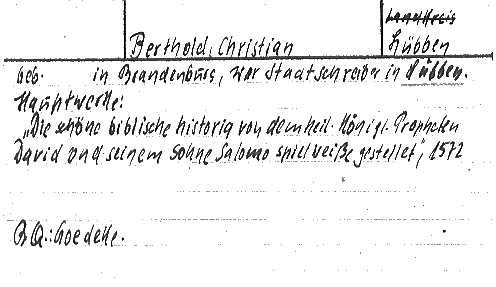 Landkreis
Berthold, Christian
Lübben
geb. in Brandenburg, war Stadtschreiber in Lübben.
Hauptwerke:
„Die schöne biblische historia von dem heil. Königl. Propheten
David und seinem Sohne Salomo spielweiße gestellet", 1572
BQ.: Goedeke.